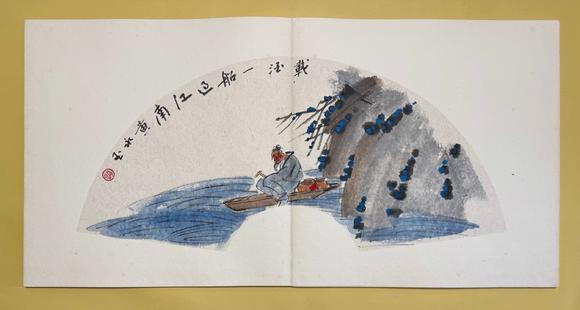 載酒一船過江南黄永玉